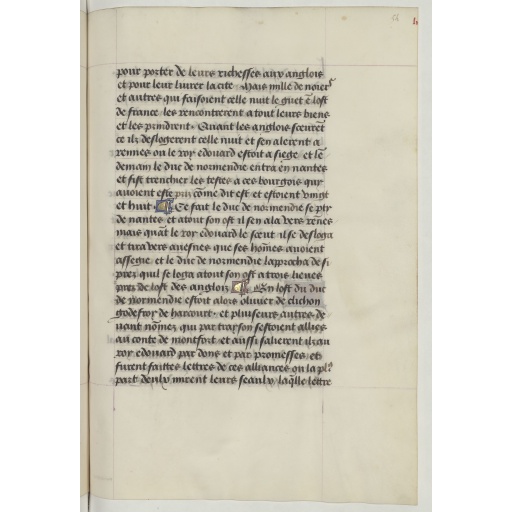 56
pour porter de leurs richesses aux anglois
et pour leur livrer la cite. Mais mille de noiers
et autres qui faisoient celle nuit le guet ē lost
de france les rencontrerent a tout leurs biens
et les prindrent. Quant les anglois sceurēt
ce ilz deslogerent celle nuit et sen alerent a
rennes ou le roy edouard estoit a siege et lē
demain le duc de normendie entra en nantes
et fist trenchier les testes a ces bourgois qui
avoient este pris cōme dit est et estoient vingt
et huit. Ce fait le duc de normendie se pty
de nantes et atout son ost il sen ala vers rēnes
mais quāt le roy edouard le sceut il se desloga
et tira vers que ses hōmes avoient
assegie et le duc de normendie lapprocha de si
prez quil se loga atout son ost a trois lieues
prez de lost des anglois En lost du duc
de normendie estoit alors olivier de clichon
godefroy de harcourt et pluiseurs autres de
vant nōmez qui par trayson sestoient alliez
au conte de montfort et aussi salierent ilz au
roy edouard par dons et par promesses et
furent faittes lettres de ces alliances ou la pl9
part deulx mirent leurs seaulx laq̄lle lettre